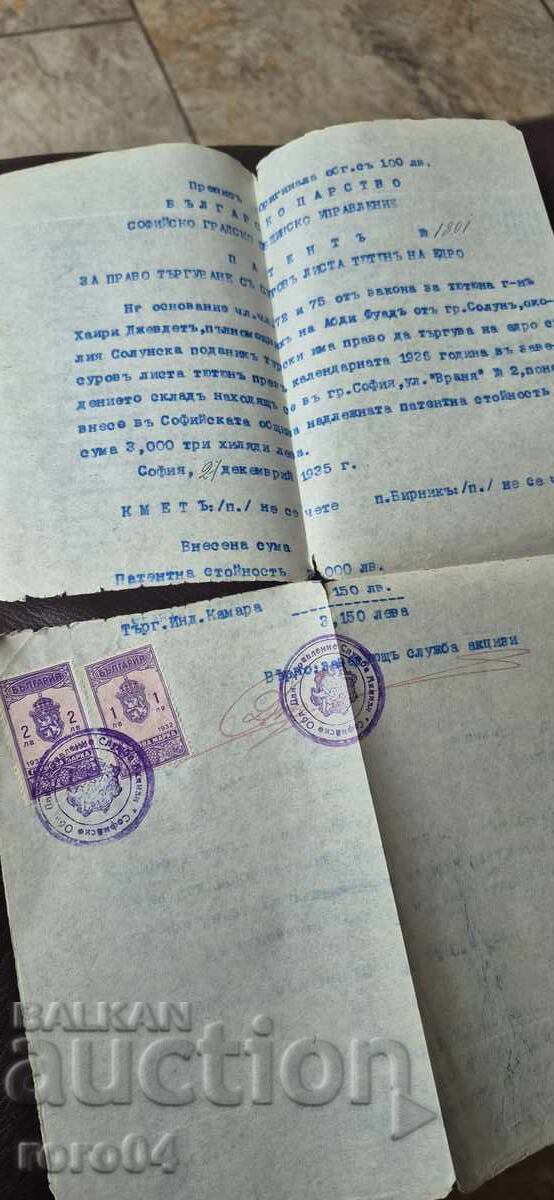 Преписъ оригинала обг.съ 100 лв.
БЪЛГАРСКО ЦАРСТВО
СОФИЙСКО ГРАДСКО ОБЩИНСКО УПРАВЛЕНИЕ
ПАТЕНТЪ № 1801
ЗА ПРАВО ТЪРГУВАНЕ СЪ СУРОВЪ ЛИСТА ТЮТЮНЪ НА ЕДРО
На основание чл.чл. 72 и 75 отъ закона за тютюна г-нъ
Хаири Джевдетъ, пълномощникъ на Абди Фуадъ отъ гр.Солунъ, око-
лия Солунска поданикъ турски има право да търгува на едро съ
суровъ листа тютюнъ презъ календарната 1936 година въ заве-
дението складъ находящъ се въ гр.София, ул."Враня" № 2, поне
внесе въ Софийската община надлежната патентна стойность
сума 3,000 три хиляди лева.
София, 27 декемврий 1935 г.
КМЕТЪ:/п./ не се чете п.Бирникъ:/п./ не се ч
Внесена сума
Патентна стойность 000 лв.
Търг.Инд.Камара 150 лв.
3,150 лева
Вѣрно: щъ служба акцизи
БЪЛГАРИЯ
2 2
ЛВ ЛВ
БЪЛГАРИЯ
1 1
ЛВ ЛВ
1932
Софийско Общ. Управление Служба Акцизи
Софийско Общ. Управление Служба Акцизи
BALKAN
auction
roro04